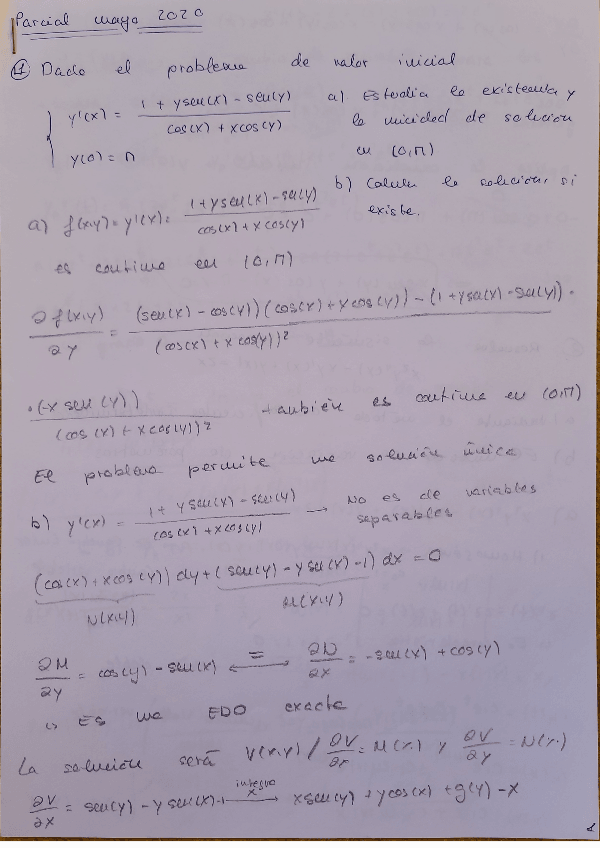 Parcial mayo 2020
1 Dado el problema de valor inicial
y'(x) = (1 + y sen(x) - sen(y)) / (cos(x) + x cos(y))
y(0) = π
a) Estudia la existencia y
la unicidad de solución
en (0,π)
b) Calcula la solución, si
existe.
a) f(x,y) = y'(x) = (1 + y sen(x) - sen(y)) / (cos(x) + x cos(y))
es continua en (0,π)
∂f(x,y)/∂y = (sen(x) - cos(y))(cos(x) + x cos(y)) - (1 + y sen(x) - sen(y)) · / (cos(x) + x cos(y))²
· (-x sen(y)) / (cos(x) + x cos(y))² también es continua en (0,π)
El problema permite una solución única
b) y'(x) = (1 + y sen(x) - sen(y)) / (cos(x) + x cos(y)) → No es de variables
separables
(cos(x) + x cos(y)) dy + (sen(y) - y sen(x) - 1) dx = 0
N(x,y) M(x,y)
∂M/∂y = cos(y) - sen(x) ←=→ ∂N/∂x = -sen(x) + cos(y)
↳ ES una EDO exacta
La solución será V(x,y) / ∂V/∂x = M(x,) y ∂V/∂y = N(x,)
∂V/∂x = sen(y) - y sen(x) - 1 integro x → x sen(y) + y cos(x) + g(y) - x
1